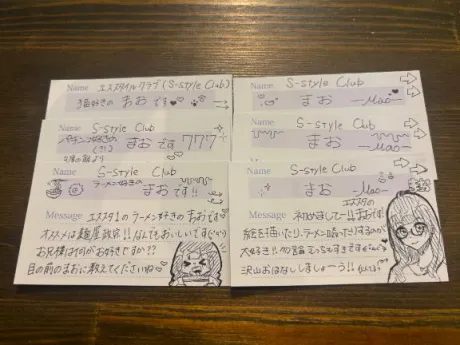 Name エススタイルクラブ(S-Style Club)
猫好きの まお です
Name S-Style Club
パチンコ好きの まお です 777
Name S-Style Club
ラーメン好きの まお です!!
Message エスタイ1のラーメン好きのまおです
オススメは麺屋武蔵!!なんでもおいしいです
お兄様は何がお好きですか??
目の前のまおに教えてくださいね
Name S-Style Club
まお -Mao-
Name S-Style Club
まお -Mao-
Name S-Style Club
まお -Mao-
Message エスタイの
まおです
絵を描いたり、ラーメン
大好き!!
沢山おはなししましょーう!!